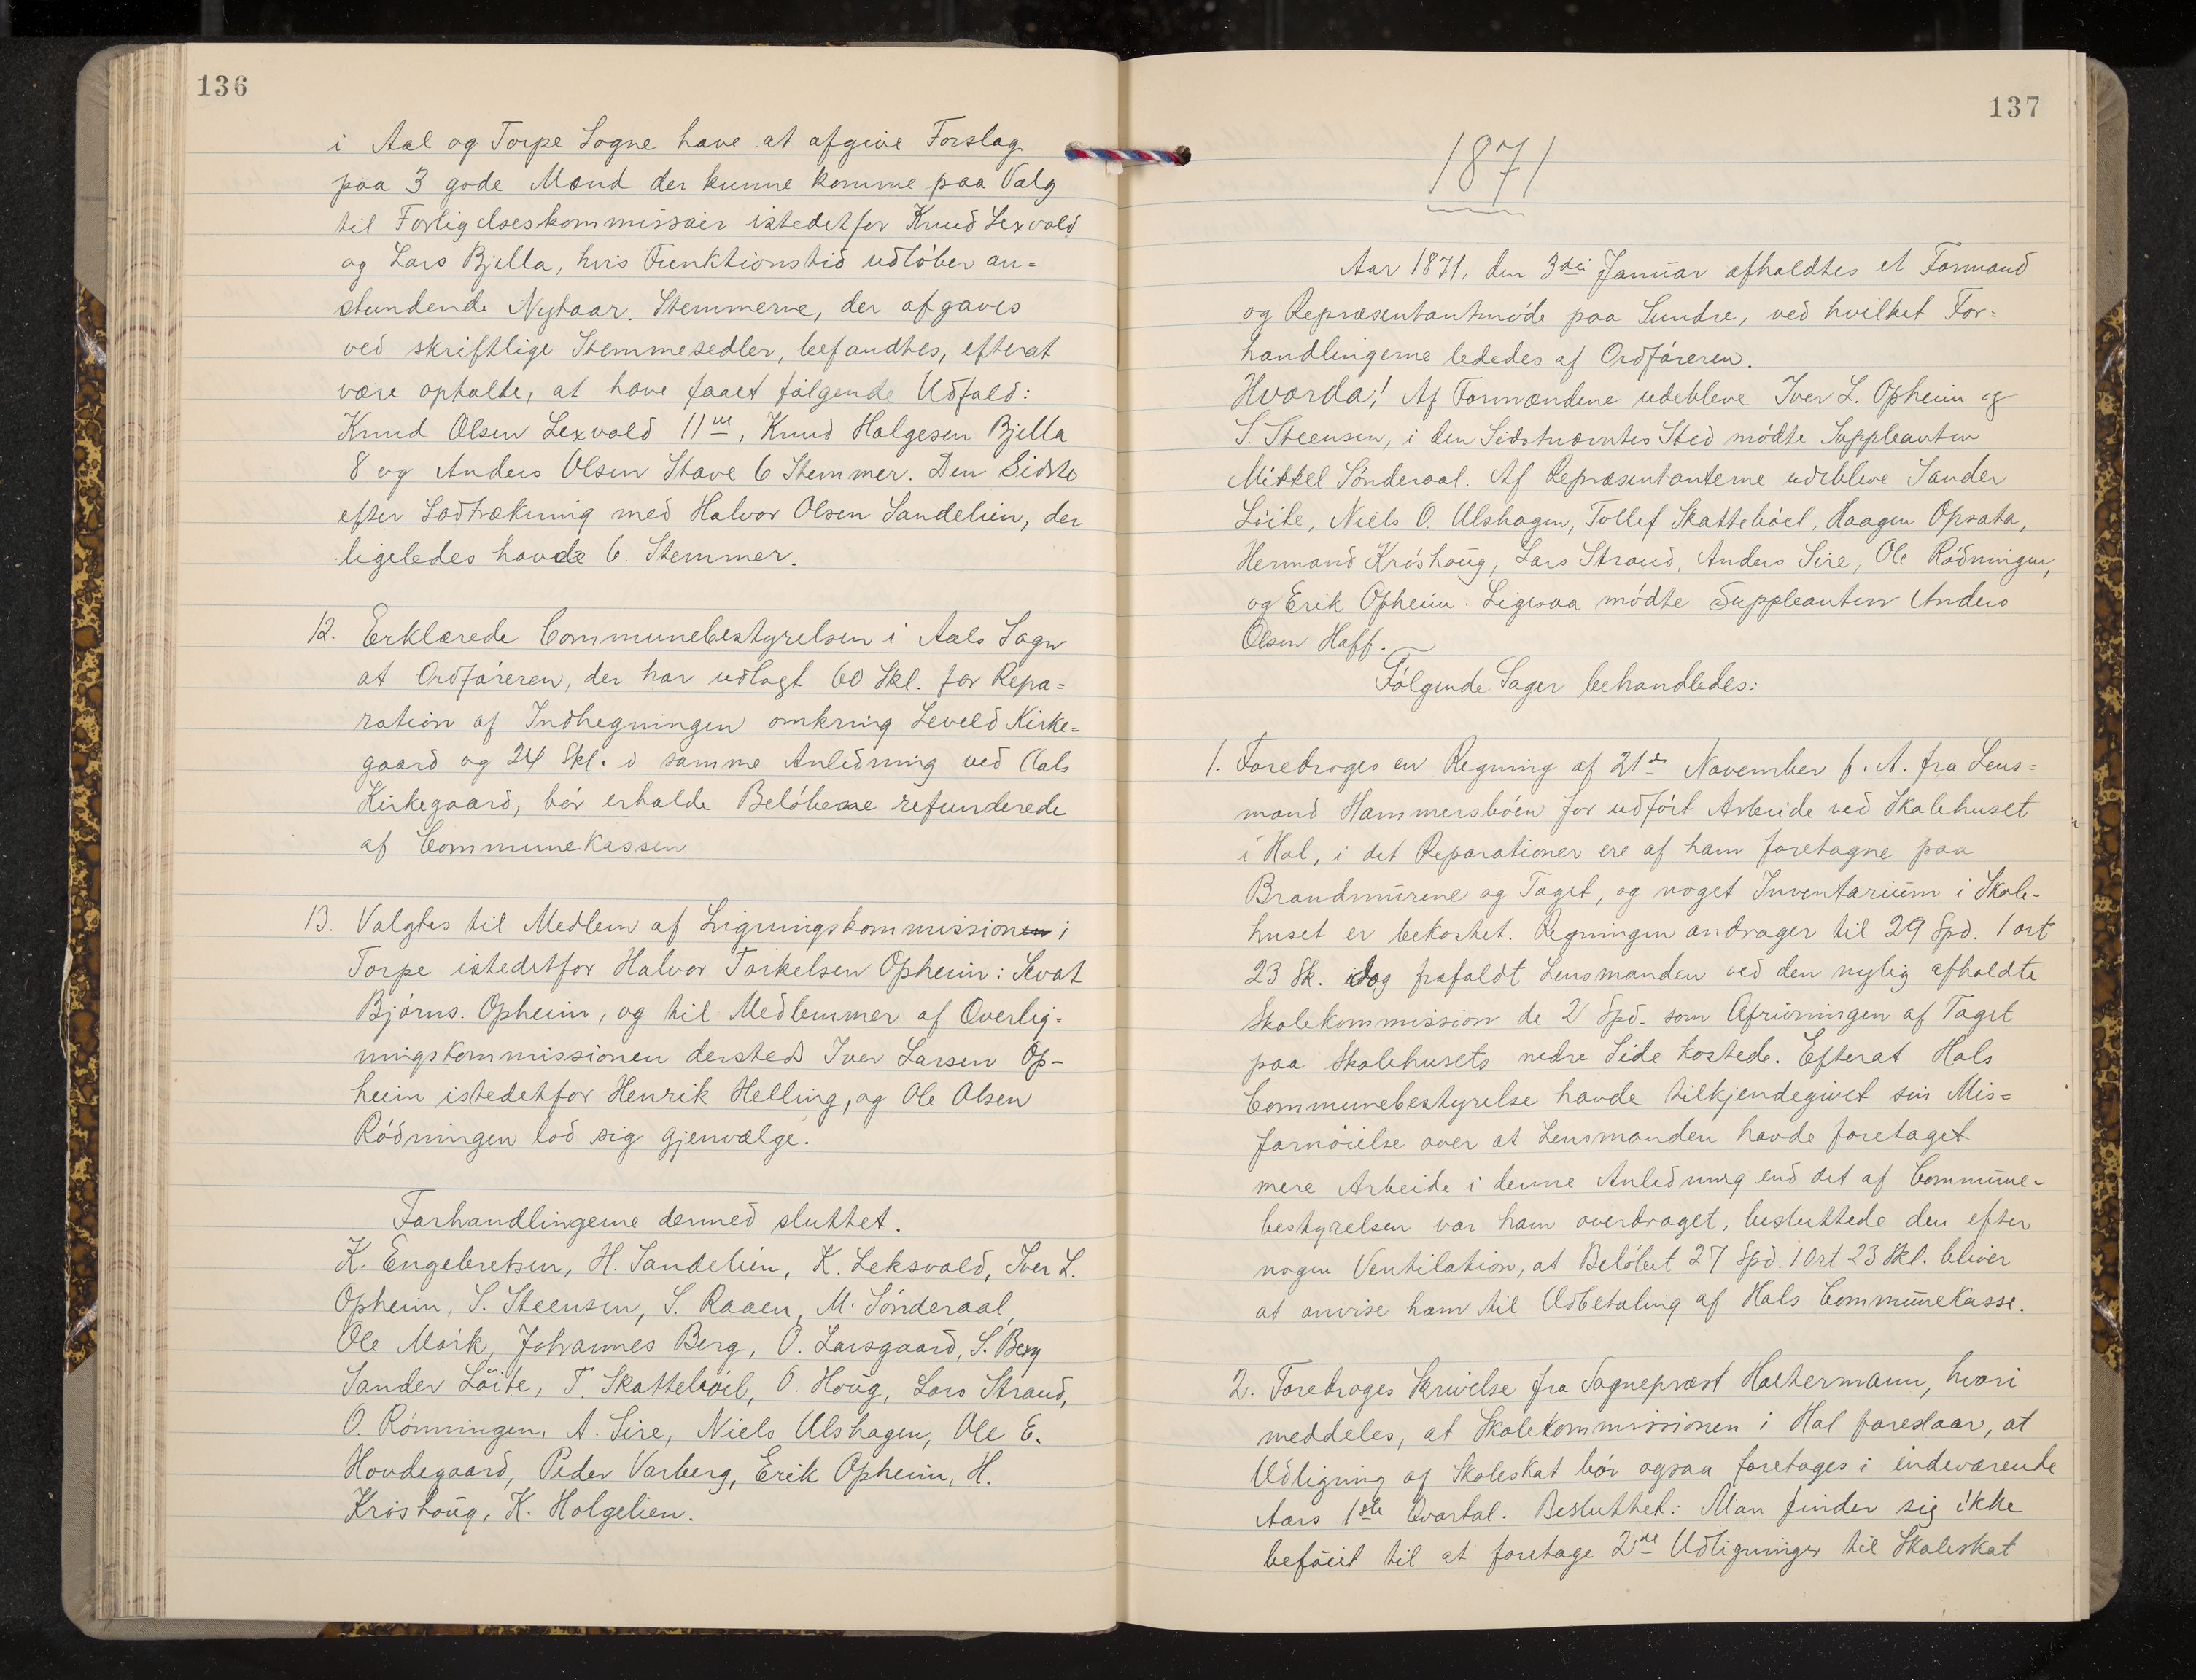 136
i Aal og Torpe Sogne have at afgive Forslag
paa 3 gode Mænd der kunne komme paa Valg
til Forligelseskommissair istedetfor Knud Lexvold
og Lars Bjella, hvis Funktionstid udløber an=
stundende Nytaar. Stemmerne, der afgaves
ved skriftlige Stemmesedler, befandtes, efterat
være optalte, at have faaet følgende Udfald:
Knud Olsen Lexvold 11ve, Knud Holgesen Bjella
8 og Anders Olsen Stave 6 Stemmer. Den Sidste
efter Lodtrækning med Halvor Olsen Sandelien, der
ligeledes havde 6. Stemmer.
12. Erklærede Communebestyrelsen i Aals Sogn
at Ordføreren, der har udlagt 60 Skl. for Repa=
ration af Indhegningen omkring Leveld Kirke=
gaard og 24 Skl. i samme Anledning ved Aals
Kirkegaard, bør erholde Beløbene refunderede
af Communekassen
13. Valgtes til Medlem af Ligningskommissionen i
Torpe istedetfor Halvor Torkelsen Opheim: Sevat
Bjørns. Opheim, og til Medlemmer af Overlig=
ningskommissionen dersteds Iver Larsen Op-
heim istedetfor Henrik Helling, og Ole Olsen
Rødningen lod sig gjenvælge.
Forhandlingerne dermed sluttet.
K. Engebretsen, H. Sandelien, K. Leksvold, Iver L.
Opheim, S. Steensen, S. Raaen, M. Sønderaal,
Ole Mørk, Johannes Berg, O. Larsgaard, S. Berg
Sander Løite, T. Skattebøel, O. Houg, Lars Strand,
O. Rønningen, A. Sire, Niels Ulshagen, Ole E.
Hovdegaard, Peder Varberg, Erik Opheim, H.
Krøshoug, K. Holgelien.
137
1871
Aar 1871, den 3die Januar afholdtes et Formand
og Repræsentantmøde paa Sundre, ved hvilket For=
handlingerne lededes af Ordføreren.
Hvorda! Af Formændene udebleve Iver L. Opheim og
S. Steensen, i den Sidstnævntes Sted mødte Suppleanten
Mikkel Sønderaal. Af Repræsentanterne udebleve Sander
Løite, Niels O. Ulshagen, Tollef Skattebøel, Haagen Opsata,
Hermand Krøshoug, Lars Strand, Anders Sire, Ole Rødningen,
og Erik Opheim. Ligesaa mødte Suppleanten Anders
Olsen Haff.
Følgende Sager behandledes:
1. Foredroges en Regning af 21de November f. A. fra Lens=
mand Hammersbøen for udført Arbeide ved Skolehuset
i Hol, i det Reparationer ere af ham foretagne paa
Brandmurene og Taget, og noget Inventarium i Skole-
huset er bekostet. Regningen andrager til 29 Spd. 1 ort
23 Sk. dog frafaldt Lensmanden ved den nylig afholdte
Skolekommission de 2 Spd. som Afrivningen af Taget
paa Skolehusets nedre Side kostede. Efterat Hols
Communebestyrelse havde tilkjendegivet sin Mis=
fornøielse over at Lensmanden havde foretaget
mere Arbeide i denne Anledning end det af Commune-
bestyrelsen var ham overdraget, besluttede den efter
nogen Ventilation, at Beløbet 27 Spd. 1 Ort 23 Skl. bliver
at anvise ham til Udbetaling af Hols Communekasse.
2. Foredroges Skrivelse fra Sognepræst Holtermann, hvori
meddeles, at Skolekommissionen i Hol foreslaar, at
Udligning af Skoleskat bør ogsaa foretages i indeværende
Aars 1ste Qvartal. Besluttet: Man finder sig ikke
beføiet til at foretage 2de Udligninger til Skoleskat